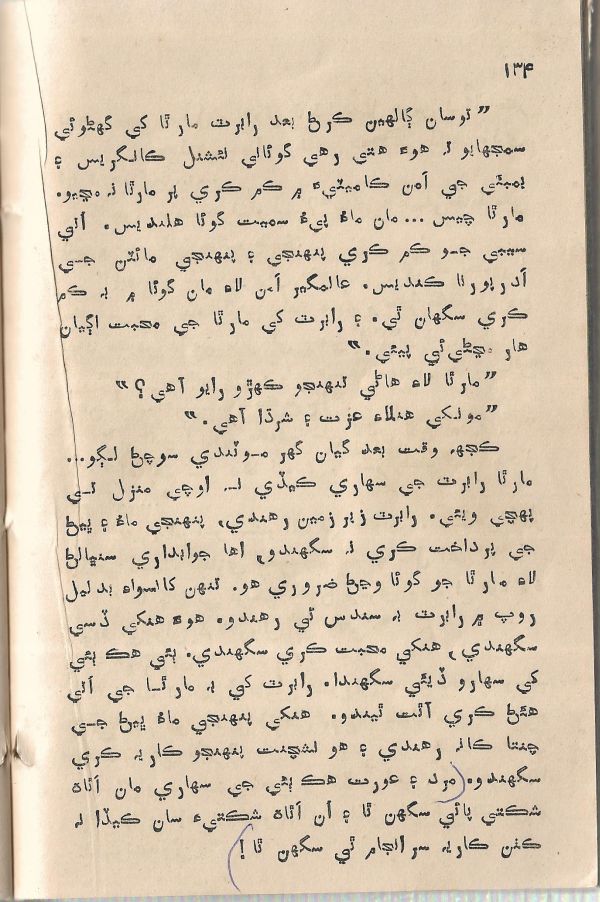 ۱۳۴
”توسان ڳالهين ڪرڻ بعد رابرٽ مارٿا کي گهڻوئي
سمجهايو تہ هوءَ هتي رهي گوئالي نئشنل ڪانگريس ۽
بمبئي جي امن ڪاميٽيءَ ۾ ڪم ڪري پر مارٿا نہ مڃيو.
مارٿا چيس ... مان ماءُ پيءُ سميت گوئا هلنديس. اتي
سيبي جو ڪم ڪري پنهنجي ۽ پنهنجي مائٽن جي
اُدر پورنا ڪنديس. عالمگير امن لاءِ مان گوئا ۾ بہ ڪم
ڪري سگهان ٿي. ۽ رابرٽ کي مارٿا جي محبت اڳيان
هار مڃڻي ئي پيئي.“
”مارٿا لاءِ هاڻي تنهنجو ڪهڙو رايو آهي؟“
”مونکي هنلاءِ عزت ۽ شرڌا آهي.“
ڪجهہ وقت بعد گيان گهر موٽندي سوچڻ لڳو...
مارٿا رابرٽ جي سهاري ڪيڏي نہ اوچي منزل تي
پهچي ويئي. رابرٽ زير زمين رهندي، پنهنجي ماءُ ۽ ڀيڻ
جي پرداخت ڪري نہ سگهندو، اها جوابداري سنڀالڻ
لاءِ مارٿا جو گوئا وڃڻ ضروري هو. تنهن کانسواءِ بدليل
روپ ۾ رابرٽ بہ سندس ئي رهندو. هوءَ هنکي ڏسي
سگهندي، هنکي محبت ڪري سگهندي. ٻئي هڪ ٻئي
کي سهارو ڏيئي سگهندا. رابرٽ کي بہ مارٿا جي اتي
هئڻ ڪري آٿت ٿيندو. هنکي پنهنجي ماءُ ڀيڻ جي
چنتا ڪانہ رهندي ۽ هو نشچنت پنهنجو ڪاريہ ڪري
سگهندو. مرد ۽ عورت هڪ ٻئي جي سهاري مان اٿاهہ
شڪتي پائي سگهن ٿا ۽ ان اٿاهہ شڪتيءَ سان ڪيڏا نہ
ڪٺن ڪاريہ سرانجام ٿي سگهن ٿا!